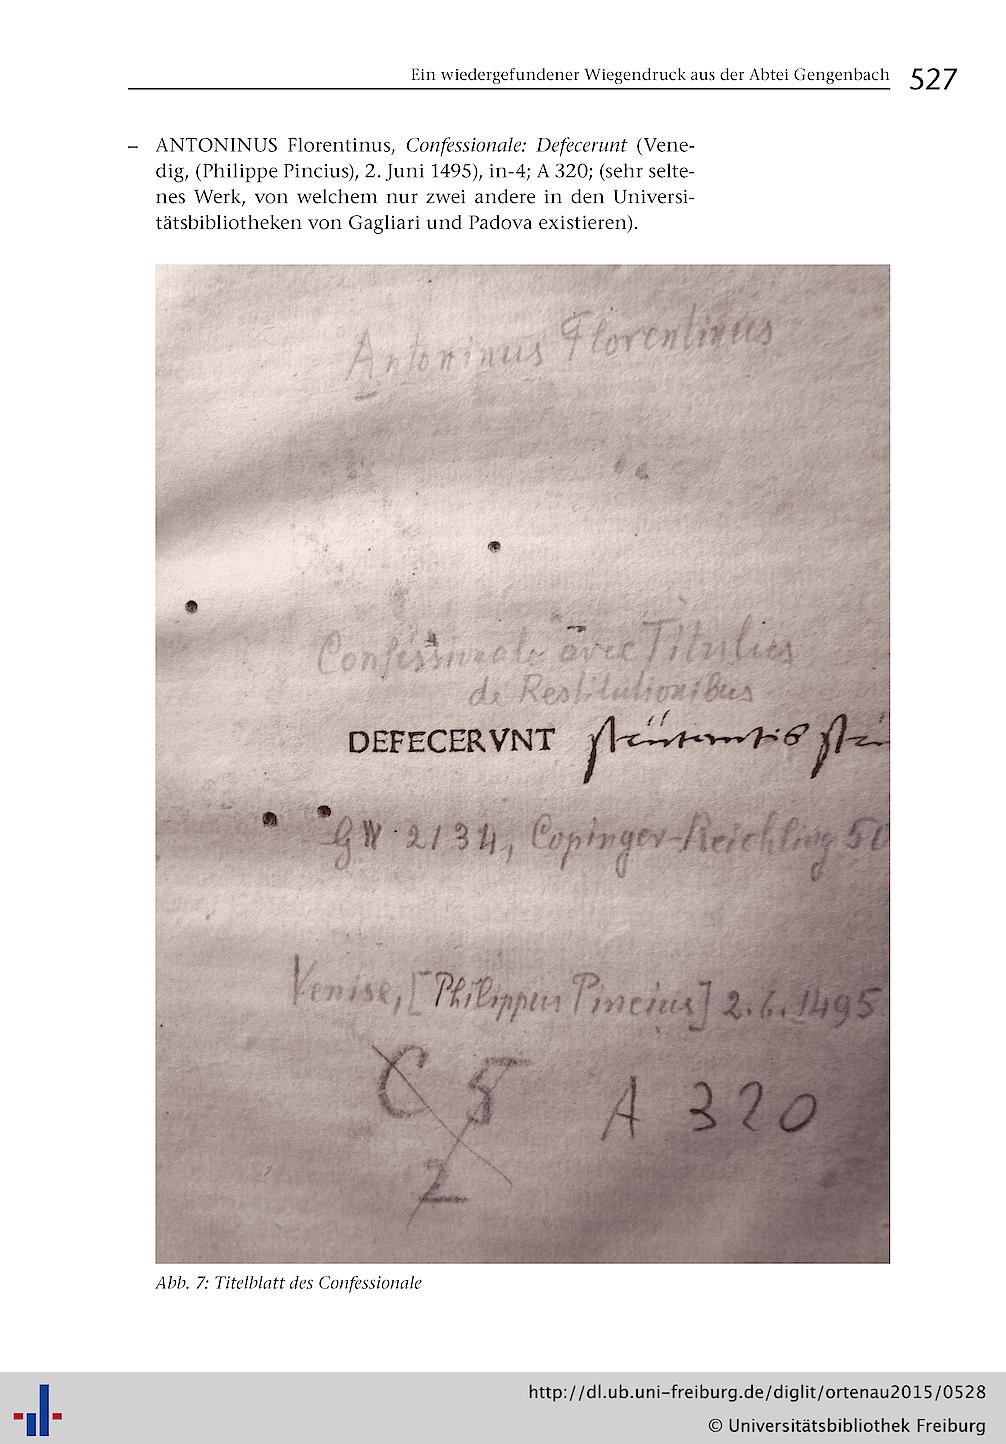 Ein wiedergefundener Wiegendruck aus der Abtei Gengenbach 527
– ANTONINUS Florentinus, Confessionale: Defecerunt (Vene-
dig, (Philippe Pincius), 2. Juni 1495), in-4; A 320; (sehr selte-
nes Werk, von welchem nur zwei andere in den Universi-
tätsbibliotheken von Gagliari und Padova existieren).
Antoninus Florentinus
Confessionale avec Titulus
de Restitutionibus
DEFECERVNT
GW 2134, Copinger-Reichling 50
Venise, [Philippus Pincius] 2.6.1495
C 5
2
A 320
Abb. 7: Titelblatt des Confessionale
http://dl.ub.uni-freiburg.de/diglit/ortenau2015/0528
© Universitätsbibliothek Freiburg